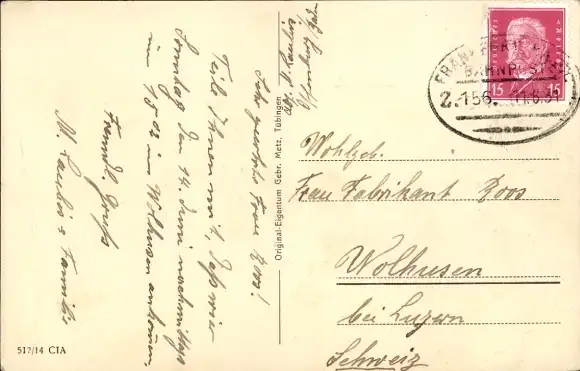 Sehr geehrte Frau Roos!
Teile Ihnen mit, daß wir
Sonntag den 14. Juni nachmittags
um 15 02 in Wolhusen ankommen.
Freundl. Gruß
M. & Familie
Original-Eigentum Gebr. Metz, Tübingen
512/14 CIA
DEUTSCHES REICH
15 15
BAHNPOST
Z. 156 11.6.31
Wohlgeb.
Frau Fabrikant Roos
Wolhusen
bei Luzern
Schweiz